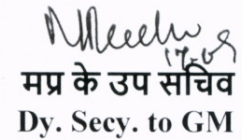 मप्र के उप सचिव
Dy. Secy. to GM